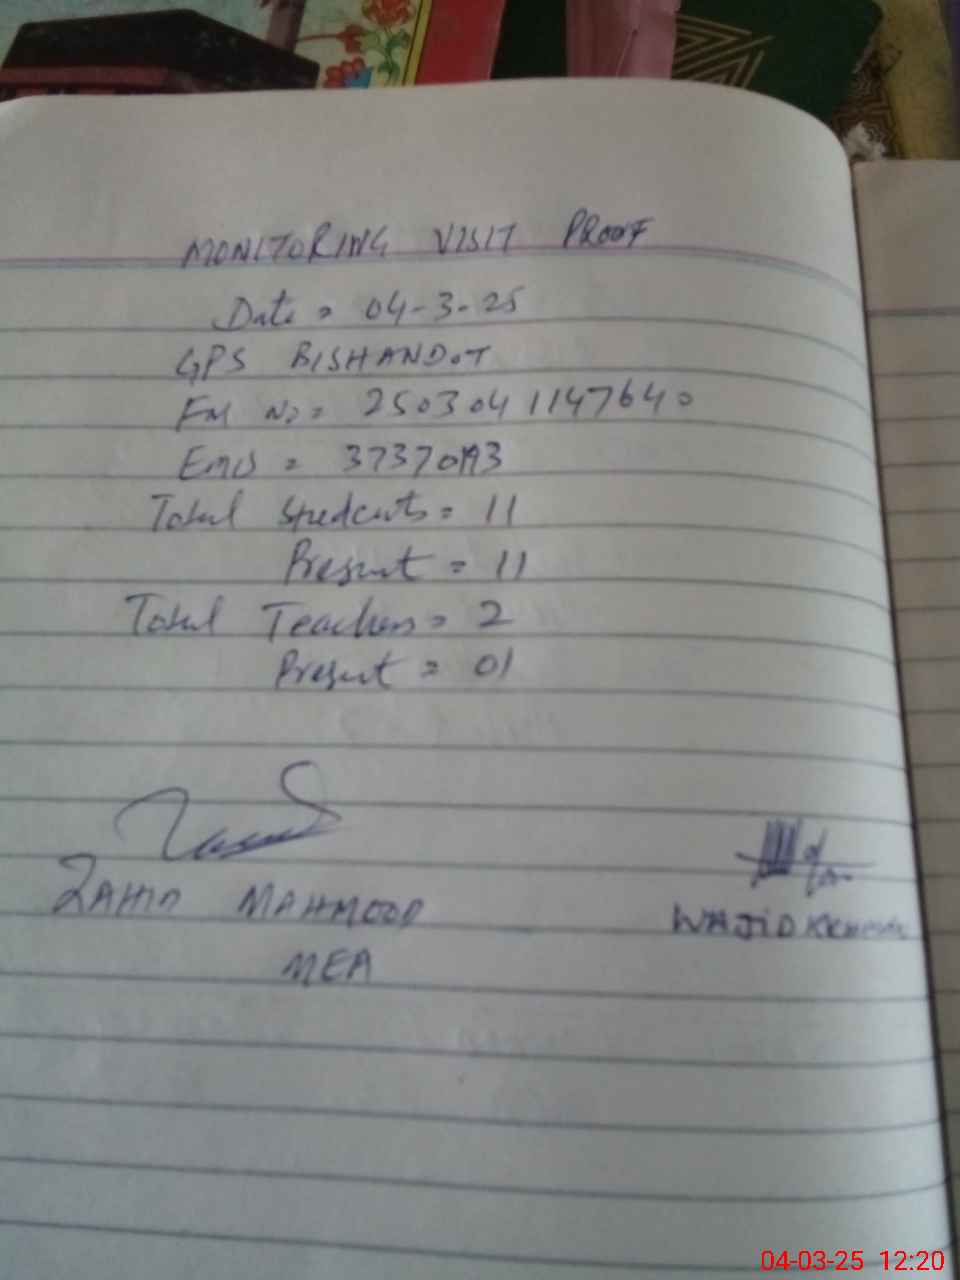 MONITORING VISIT PROOF
Date = 04-3-25
GPS BISHANDOT
FM No = 25030411147640
EMIS = 37370193
Total Students = 11
Present = 11
Total Teachers = 2
Present = 01
ZAHID MAHMOOD
MEA
WAJID
04-03-25 12:20